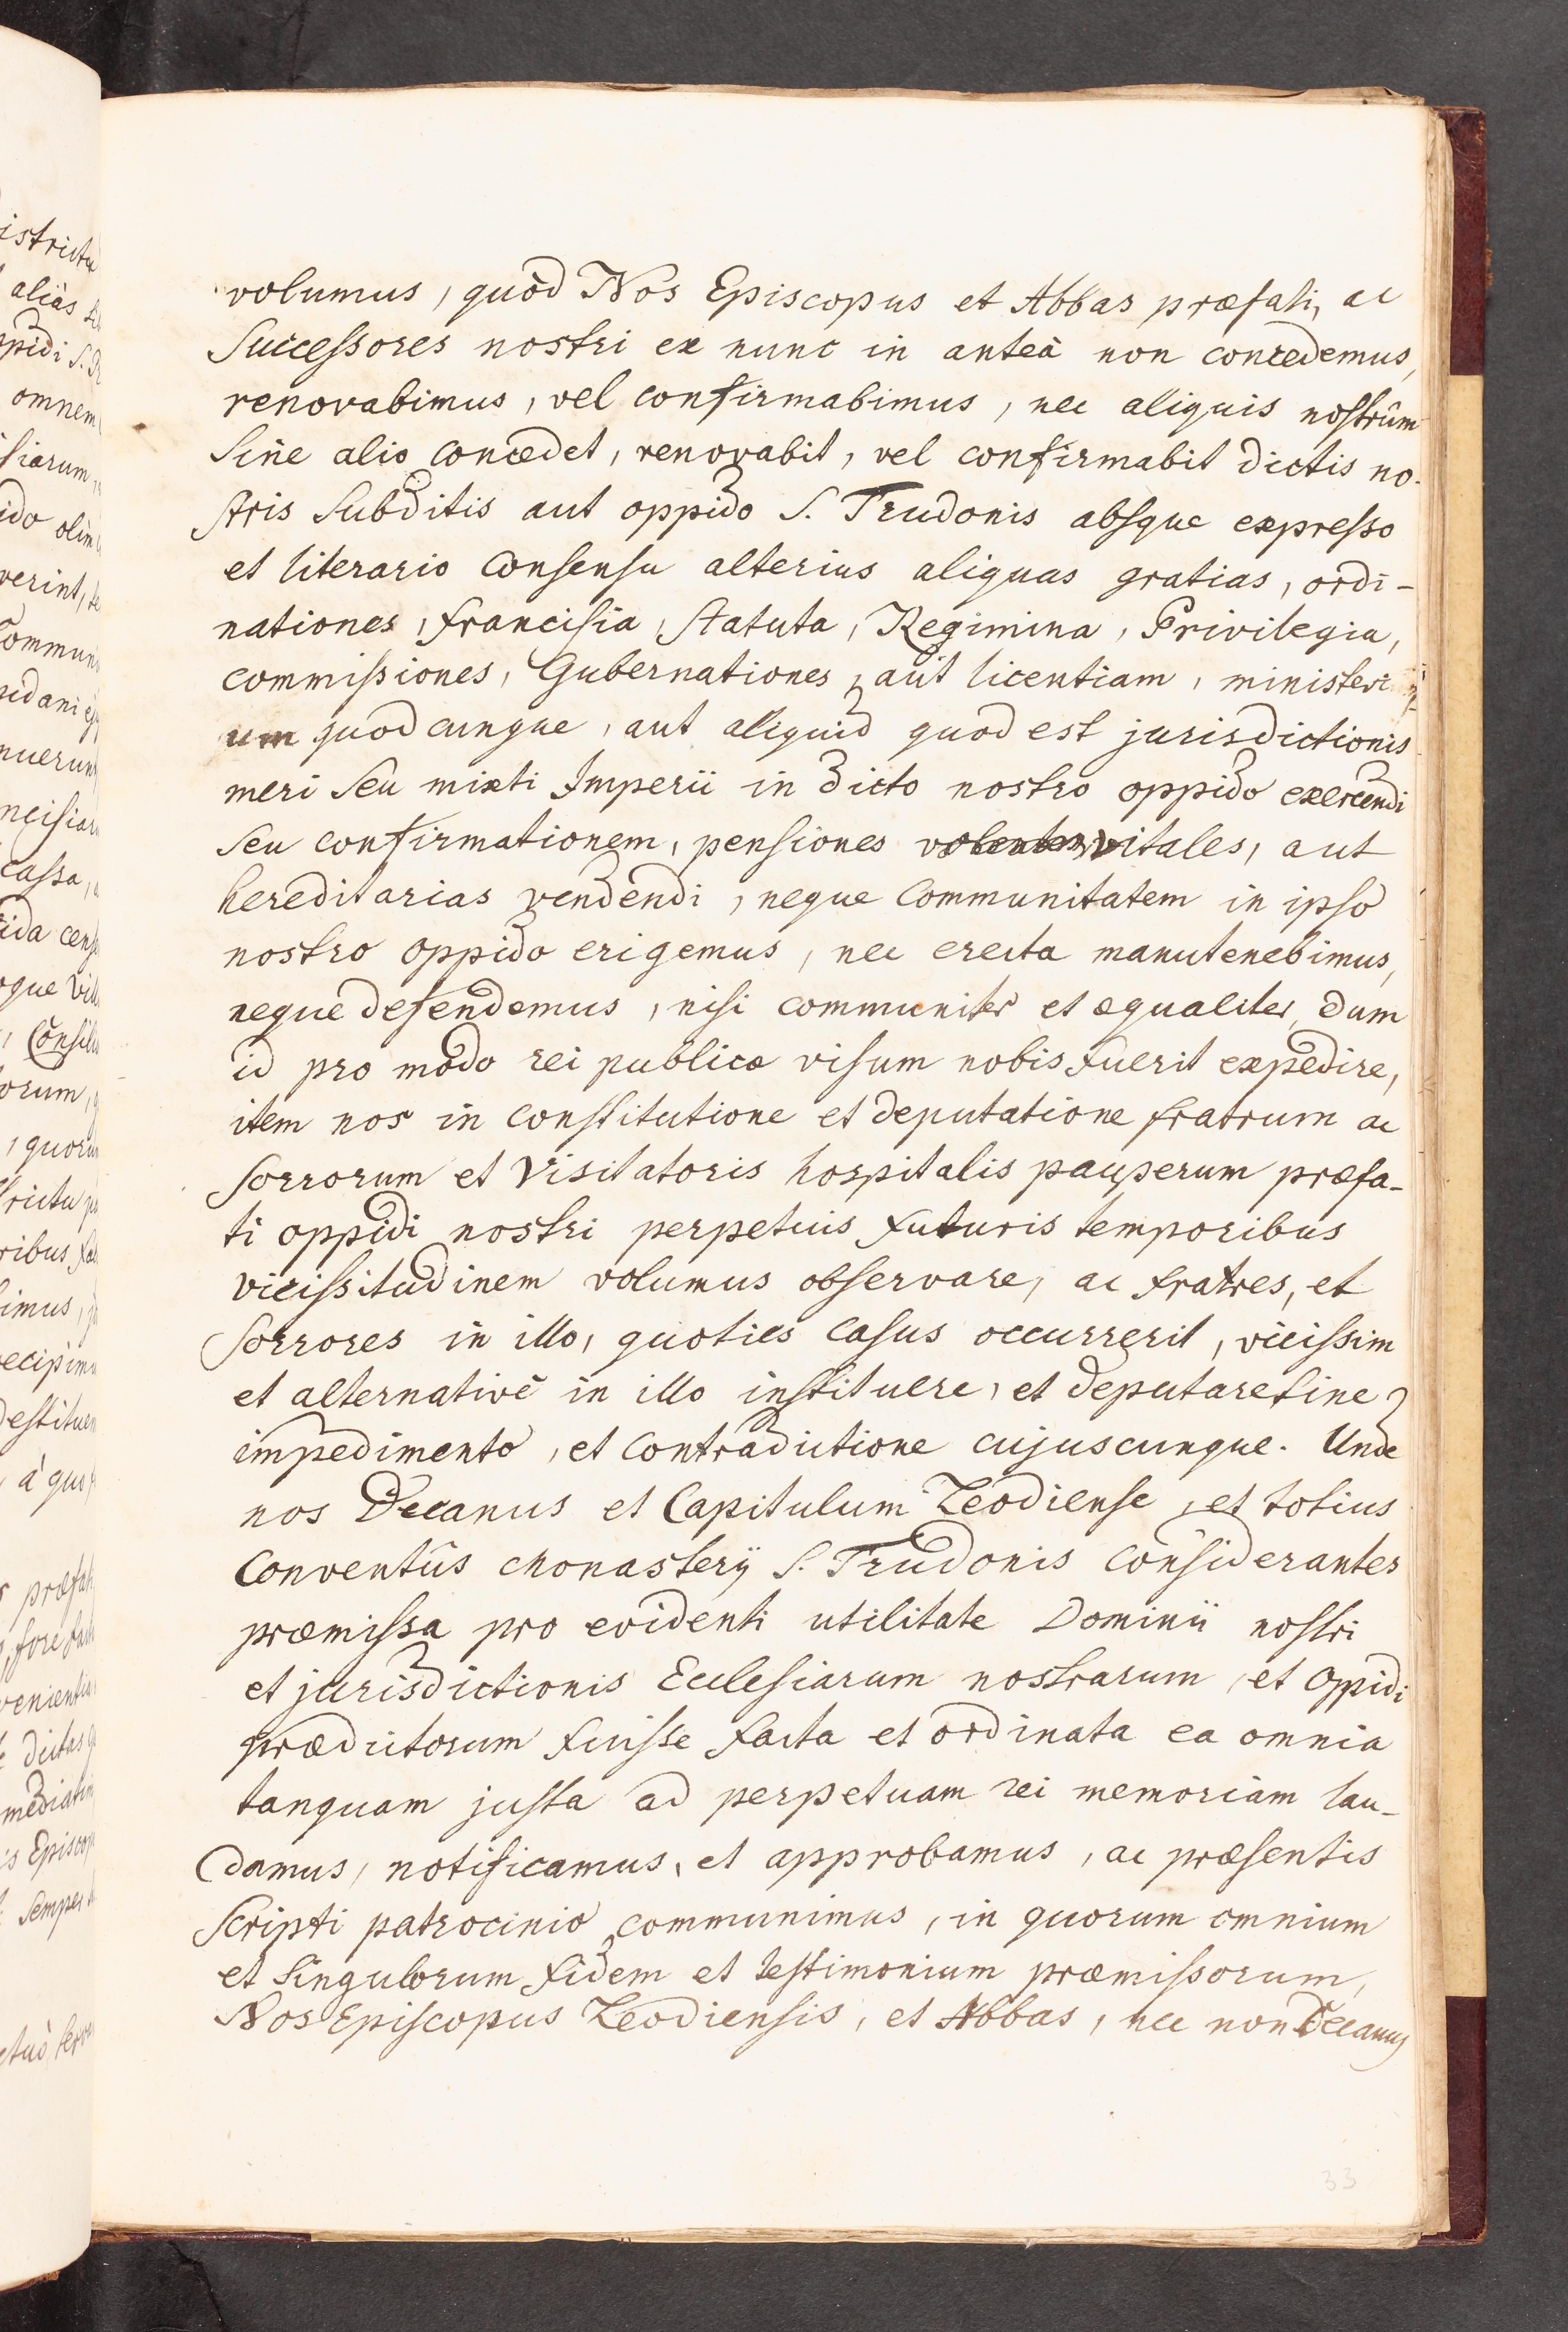 volumus, quòd Nos Episcopus et Abbas præfati, ac
Successores nostri ex nunc in anteà non concedemus,
renovabimus, vel confirmabimus, nec aliquis nostrûm
Sine alio concedet, renovabit, vel confirmabit dictis no-
stris Subditis aut oppido S. Trudonis absque expresso
et literario Consensu alterius aliquas gratias, ordi-
nationes, francisia, Statuta, Regimina, Privilegia,
commissiones, Gubernationes, aut licentiam, ministeri
um quodcunque, aut aliquid quod est jurisdictionis
meri seu mixti Imperii in dicto nostro oppido exercendi
seu confirmationem, pensiones vitales, aut
hereditarias vendendi, neque Communitatem in ipso
nostro oppido erigemus, nec erecta manutenebimus,
neque defendemus, nisi communiter et æqualiter, dum
id pro modo rei publicæ visum nobis fuerit expedire,
item nos in constitutione et deputatione fratrum ac
Sorrorum et Visitatoris hospitalis pauperum præfa-
ti oppidi nostri perpetuis futuris temporibus
vicissitudinem volumus observare, ac fratres, et
Sorrores in illo, quoties casus occurrerit, vicissim
et alternativè in illo instituere, et deputare sine
impedimento, et contradictione cujuscunque. Unde
nos Decanus et Capitulum Leodiense, et totius
Conventûs monasterij S. Trudonis considerantes
præmissa pro evidenti utilitate Dominii nostri
et jurisdictionis Ecclesiarum nostrarum, et oppidi
prædictorum fuisse facta et ordinata ea omnia
tanquam justa ad perpetuam rei memoriam lau-
damus, notificamus, et approbamus, ac præsentis
Scripti patrocinio communimus, in quorum omnium
et singulorum fidem et testimonium præmissorum,
Nos Episcopus Leodiensis, et Abbas, nec non Decanus
33